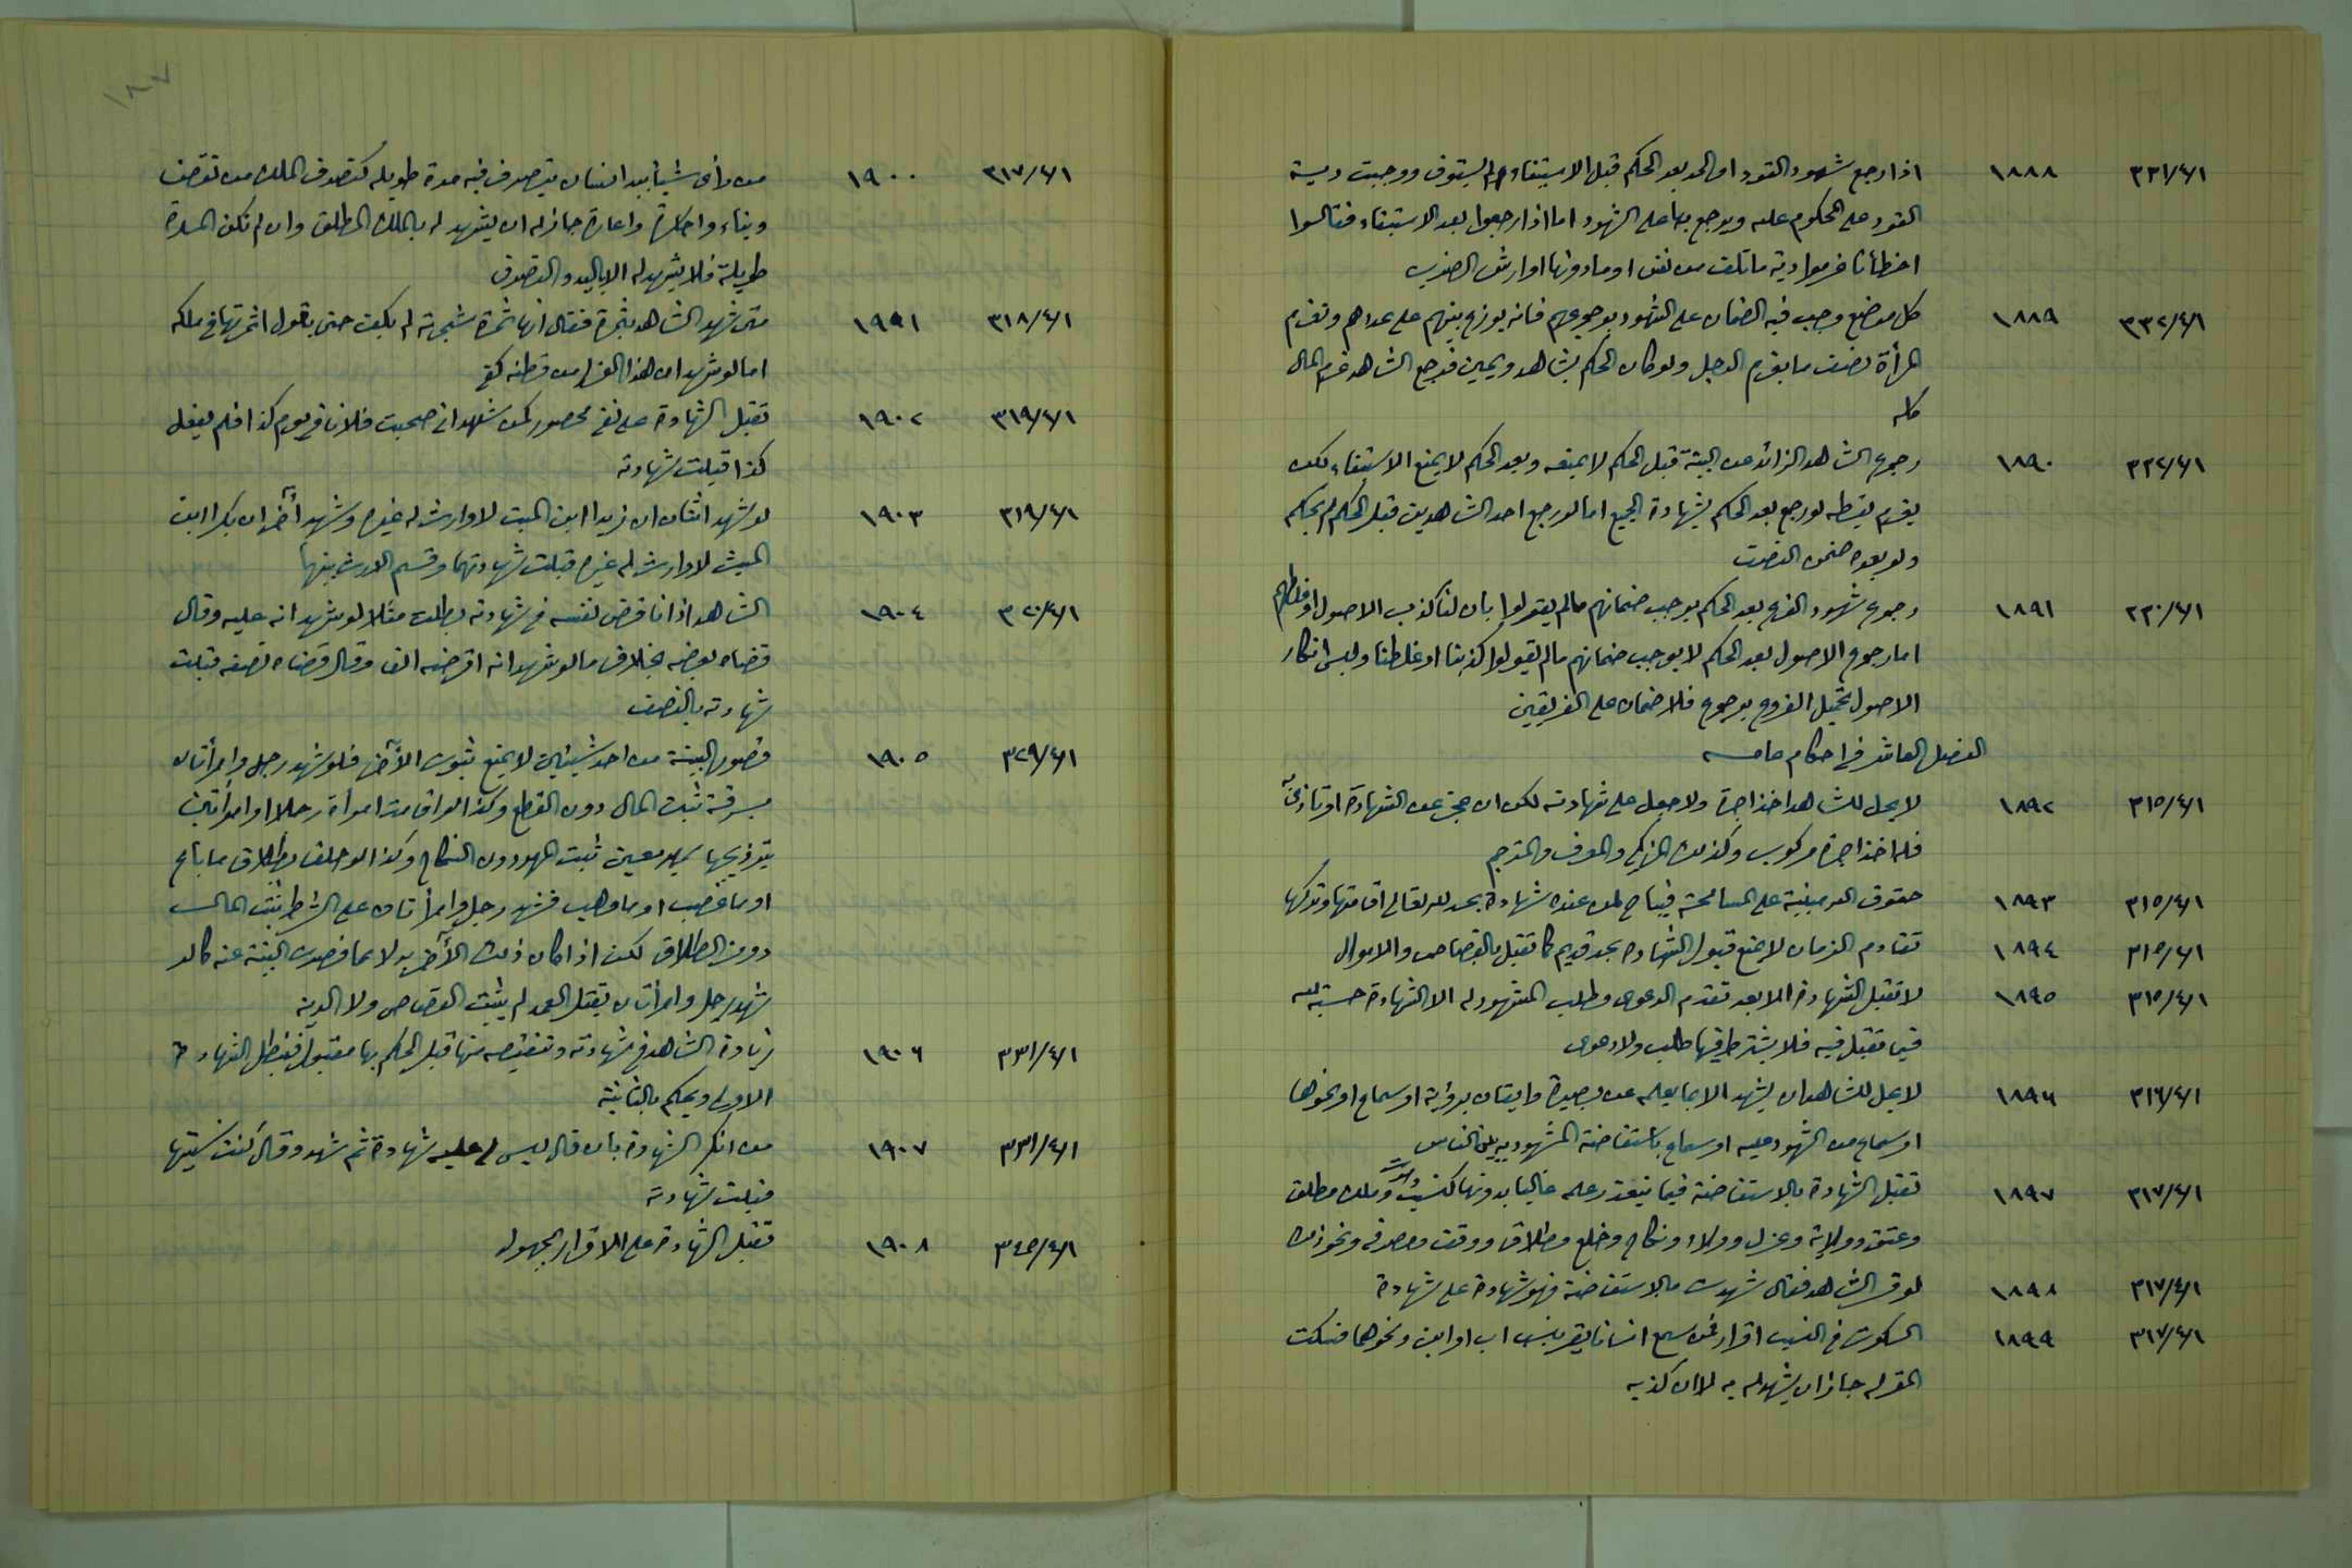 ٣٣١/٤/١ ١٨٨٨ اذا رجع شهود القود او الحد بعد الحكم قبل الاستيفاء لم يستوف ووجبت دية
القود على المحكوم عليه ويرجع بها على الشهود اما اذا رجعوا بعد الاستيفاء فقالوا
اخطأنا غرموا دية ما تلف من نفس او ما دونها او ارش الضرب
٣٣٢/٤/١ ١٨٨٩ كل موضع وجب فيه الضمان على الشهود برجوعهم فانه يوزع بينهم على عددهم وتغرم
المرأة نصف ما يغرم الرجل ولو كان الحكم بشاهد ويمين فرجع الشاهد غرم المال
كله
٣٣٢/٤/١ ١٨٩٠ رجوع الشاهد الزائد عن البينة قبل الحكم لا يمنعه وبعد الحكم لا يمنع الاستيفاء لكن
يغرم بقسطه لو رجع بعد الحكم بشهادة الجميع اما لو رجع احد الشاهدين قبل الحكم لم يحكم
ولو بعده ضمن النصف
٣٣٠/٤/١ ١٨٩١ رجوع شهود الفرع بعد الحكم يوجب ضمانهم مالم يقولوا بان لنا كذب الاصول او غلطهم
اما رجوع الاصول بعد الحكم لا يوجب ضمانهم مالم يقولوا كذبنا او غلطنا وليس انكار
الاصول تحميل الفروع برجوع فلا ضمان على الفريقين
الفصل العاشر في احكام عامه
٣١٥/٤/١ ١٨٩٢ لا يحل للشاهد اخذ اجرة ولا جعل على شهادته لكن ان عجز عن الشهادة او تأذى به
فله اخذ اجرة مركوب وكذلك المزكي والمعرف والمترجم
٣١٥/٤/١ ١٨٩٣ حقوق الله مبنية على المسامحة فيباح لمن عنده شهادة بحد لله تعالى اقامتها وتركها
٣١٥/٤/١ ١٨٩٤ تقادم الزمان لا يمنع قبول الشهادة بحد قديم كما تقبل بالقصاص والاموال
٣١٥/٤/١ ١٨٩٥ لا تقبل الشهادة الا بعد تقدم الدعوى وطلب المشهود له الا الشهادة حسبة لله
فيما تقبل فيه فلا يشترط فيها طلب ولا دعوى
٣١٦/٤/١ ١٨٩٦ لا يحل للشاهد ان يشهد الا بما يعلمه عن بصيرة وايقان برؤية او سماع او نحوها
او سماع من الشهود عليه او سماع باستفاضة المشهود به بين الناس
٣١٧/٤/١ ١٨٩٧ تقبل الشهادة بالاستفاضة فيما يتعذر علمه غالبا بدونها كنسب وموت وملك مطلق
وعتق وولاية وعزل وولاء ونكاح وخلع وطلاق ووقف ومصرفه ونحو ذلك
٣١٧/٤/١ ١٨٩٨ لو قر الشاهد فقال شهدت بالاستفاضة فهو شهادة على شهادة
٣١٧/٤/١ ١٨٩٩ السكوت في النسب اقرار فمن سمع انسانا يقر بنسب اب او ابن ونحوهما فسكت
المقر له جاز ان يشهد له به لا ان كذبه
١٨٧
٣١٧/٤/١ ١٩٠٠ من رأى شيئا بيد انسان يتصرف فيه مدة طويلة كتصرف الملاك من نقض
وبناء واجارة واعارة جاز له ان يشهد له بالملك المطلق وان لم تكن المدة
طويلة فلا يشهد له الا باليد والتصرف
٣١٨/٤/١ ١٩٩١ متى شهد الشاهد بثمرة فقال انها ثمرة شجرته لم يكف حتى يقول اثمرتها في ملكه
اما لو شهد ان هذا الغزل من قطنه كفى
٣١٩/٤/١ ١٩٠٢ تقبل الشهادة على نفي محصور كمن شهد اني صحبت فلانا في يوم كذا فلم يفعل
كذا قبلت شهادته
٣١٩/٤/١ ١٩٠٣ لو شهد اثنان ان زيدا ابن الميت لا وارث له غيره وشهد آخران ان بكرا ابن
الميت لا وارث له غيره قبلت شهادتهما وقسم الارث بينهما
٣٢٠/٤/١ ١٩٠٤ الشاهد اذا ناقض نفسه في شهادته بطلت مثلا لو شهد انه عليه وقال
قضاه بعضه بخلاف ما لو شهد انه اقرضه الف وقال قضاه نصفه قبلت
شهادته بالنصف
٣٢٩/٤/١ ١٩٠٥ قصور البينة من احد شيئين لا يمنع ثبوت الآخر فلو شهد رجل وامرأتان
بسرقة ثبت المال دون القطع وكذا لو اقامت امرأة رجلا او امرأتين
بتزويجها بمهر معين ثبت المهر دون النكاح وكذا لو حلف بطلاق ما باع
او ما غصب او ما وهب فشهد رجل وامرأتان على الشرط ثبت المال
دون الطلاق لكن اذا كان ذلك الآخر بدلا عما قصرت البينة عنه كما لو
شهد رجل وامرأتان بقتل العمد لم يثبت القصاص ولا الدية
٣٣١/٤/١ ١٩٠٦ زيادة الشاهد في شهادته وتنقيصه منها قبل الحكم بها مقبول فتبطل الشهادة
الاولى ويحكم بالثانية
٣٣١/٤/١ ١٩٠٧ من انكر الشهادة بان قال ليس لي عليه شهادة ثم شهد وقال كنت نسيتها
قبلت شهادته
٣٤٥/٤/١ ١٩٠٨ تقبل الشهادة على الاقرار بمجهول